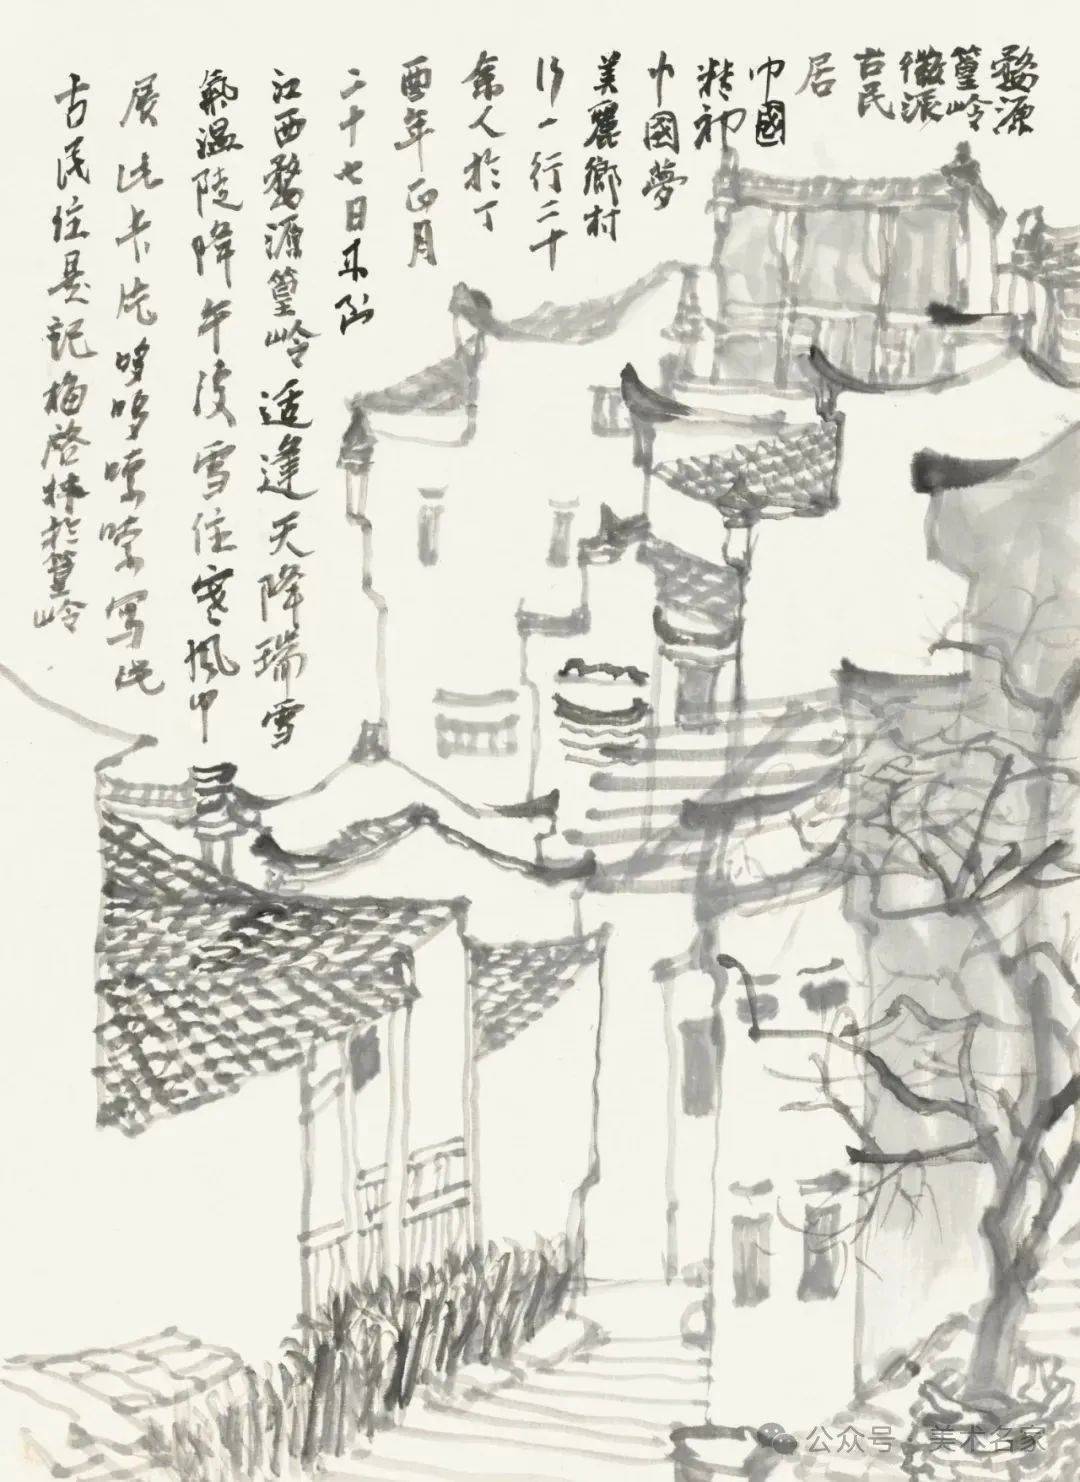 婺源
篁岭
徽派
古民
居
中國
精神
中國夢
美麗鄉村
行一行二十
余人於丁
酉年正月
二十七日来到
江西婺源篁岭适逢天降瑞雪
氣温陡降午後雪住寒風中
展此卡片哆哆嗦嗦写此
古民住记梅啓林於篁岭
公众号 · 美术名家